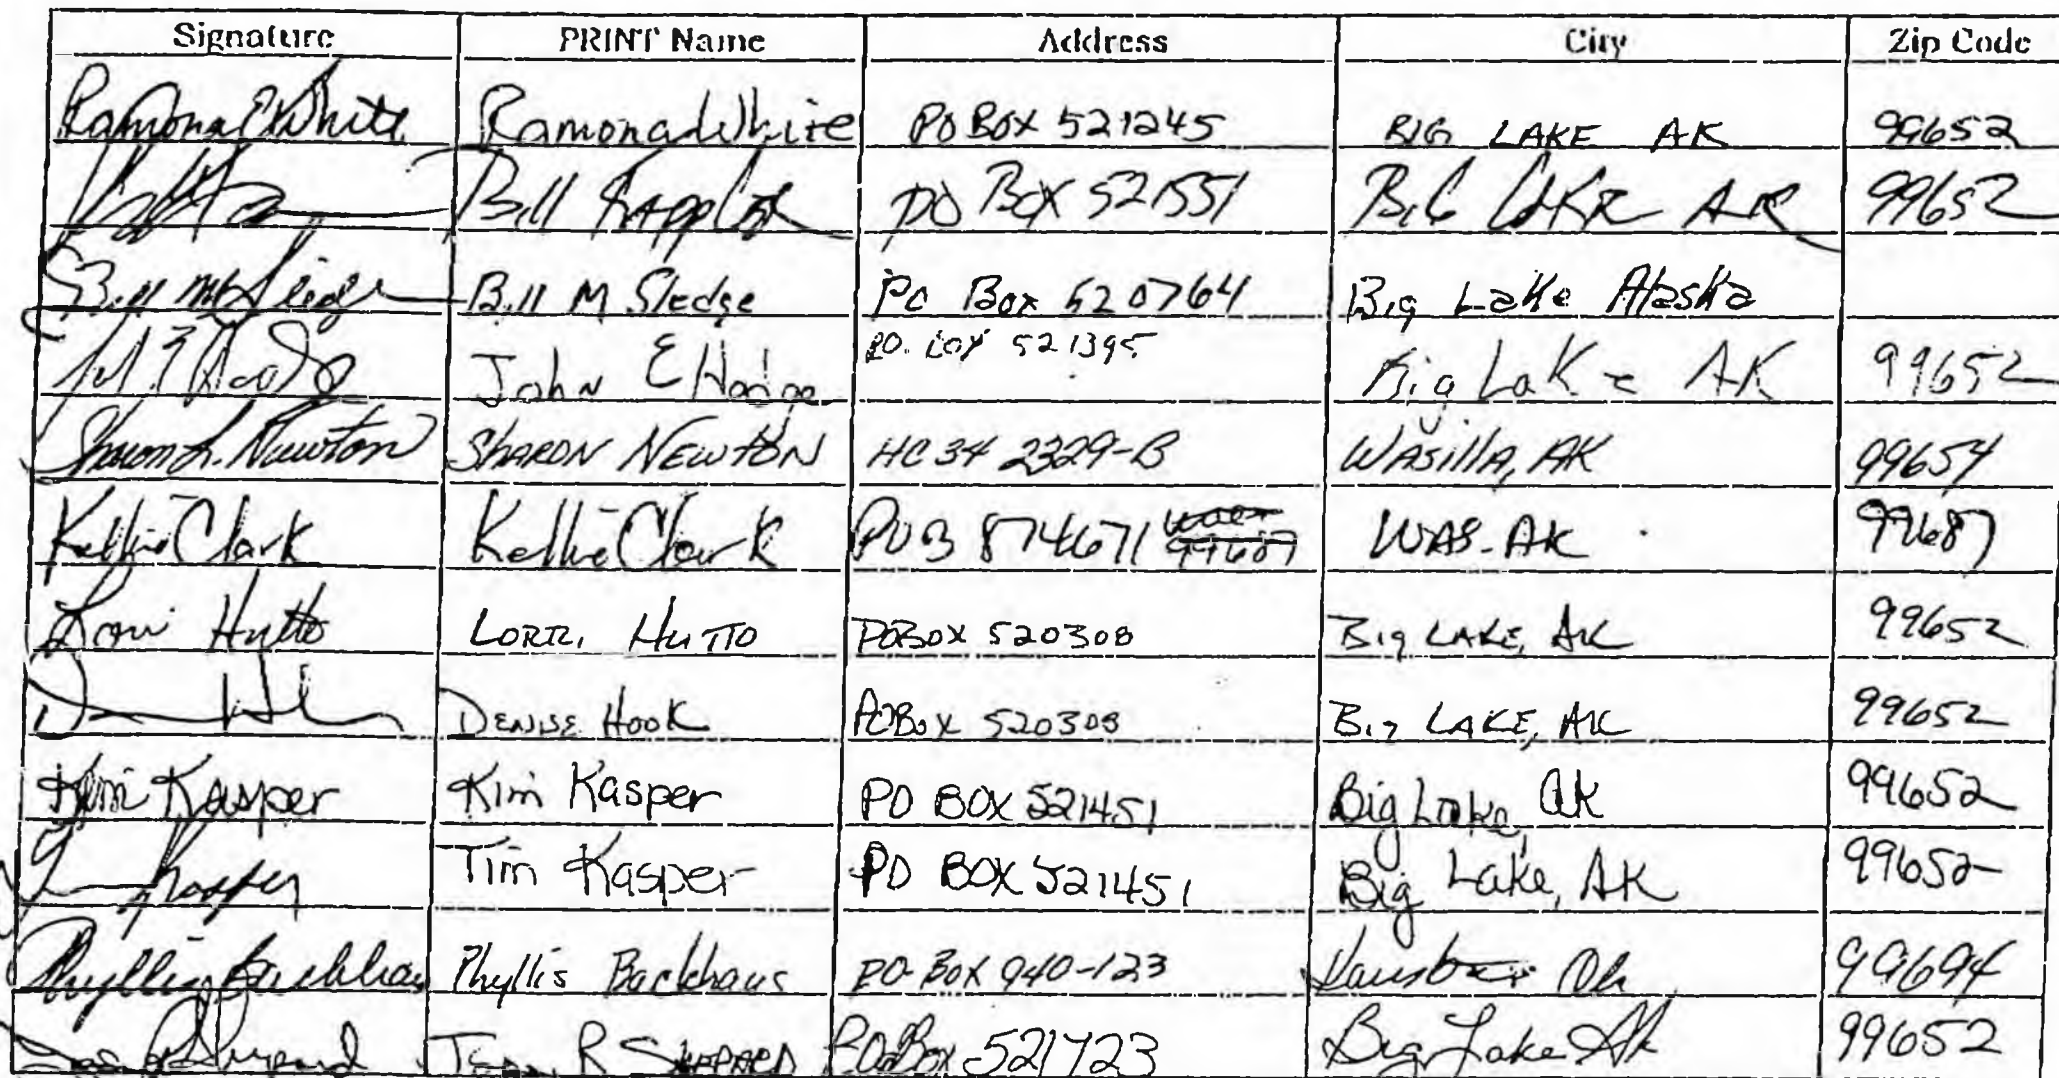 Signature PRINT Name Address City Zip Code
Ramona White Ramona White PO BOX 521245 BIG LAKE AK 99652
Bill PO Box 521551 Big Lake AK 99652
Bill M Sledge Bill M Sledge PO Box 520764 Big Lake Alaska
John E Hodge P.O. Box 521395 Big Lake AK 99652
Sharon L. Newton SHARON NEWTON HC 34 2329-B WASILLA, AK 99654
Kellie Clark Kellie Clark POB 874671 99687 WAS. AK 99687
Lorri Hutto LORRI HUTTO POBOX 520308 Big LAKE, AK 99652
DENISE HOOK POBOX 520308 Big LAKE, AK 99652
Kim Kasper Kim Kasper PO BOX 521451 Big Lake, AK 99652
Kasper Tim Kasper PO BOX 521451 Big Lake, AK 99652
Phyllis Backhaus Phyllis Backhaus PO-BOX 940-123 99694
R SHEPARD PO Box 521723 Big Lake Ak 99652